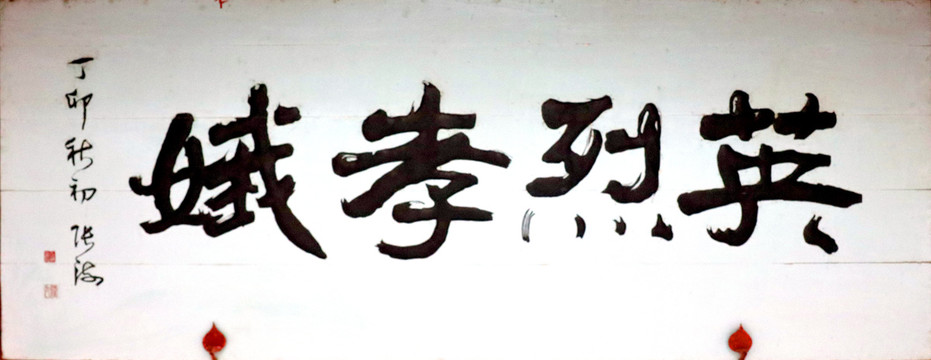 英烈孝娥
丁卯秋初 张海